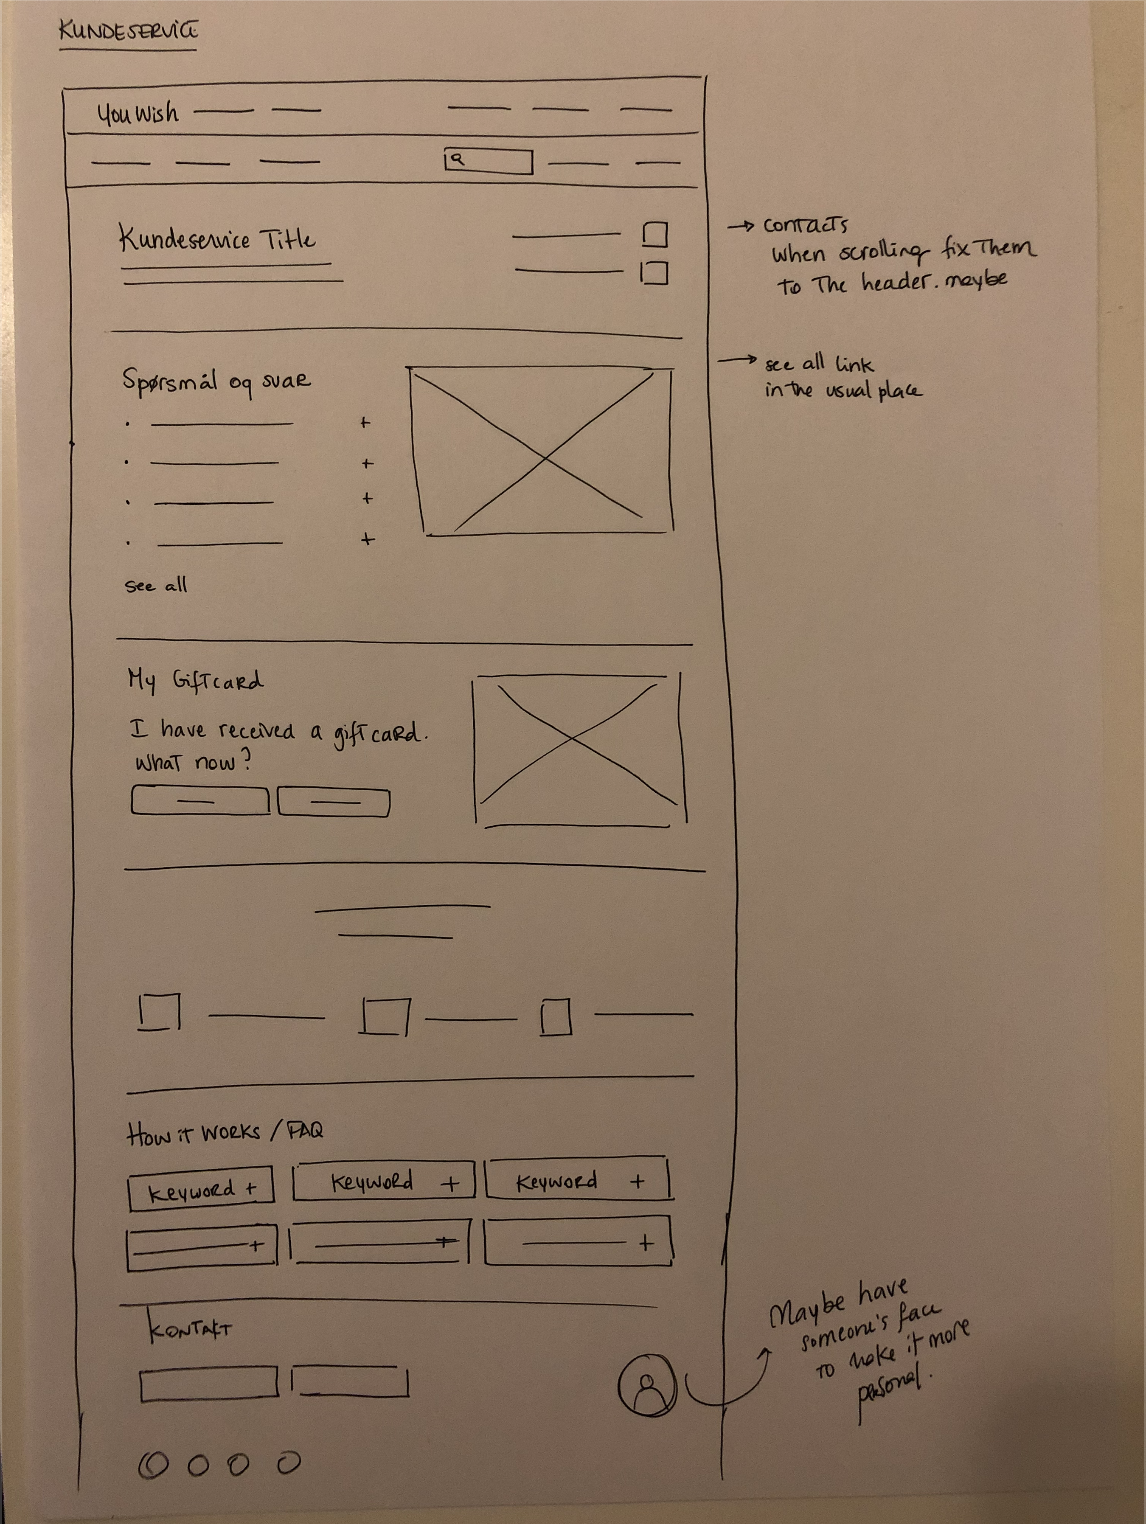 KUNDESERVICE
You Wish
Kundeservice Title
→ contacts
when scrolling fix Them
to The header. maybe
Spørsmål og svar
→ see all link
in the usual place
+
+
+
+
see all
My Giftcard
I have received a giftcard.
What now?
How it works / FAQ
Keyword +
Keyword +
Keyword +
+
+
+
Kontakt
Maybe have
someone's face
to make it more
personal.